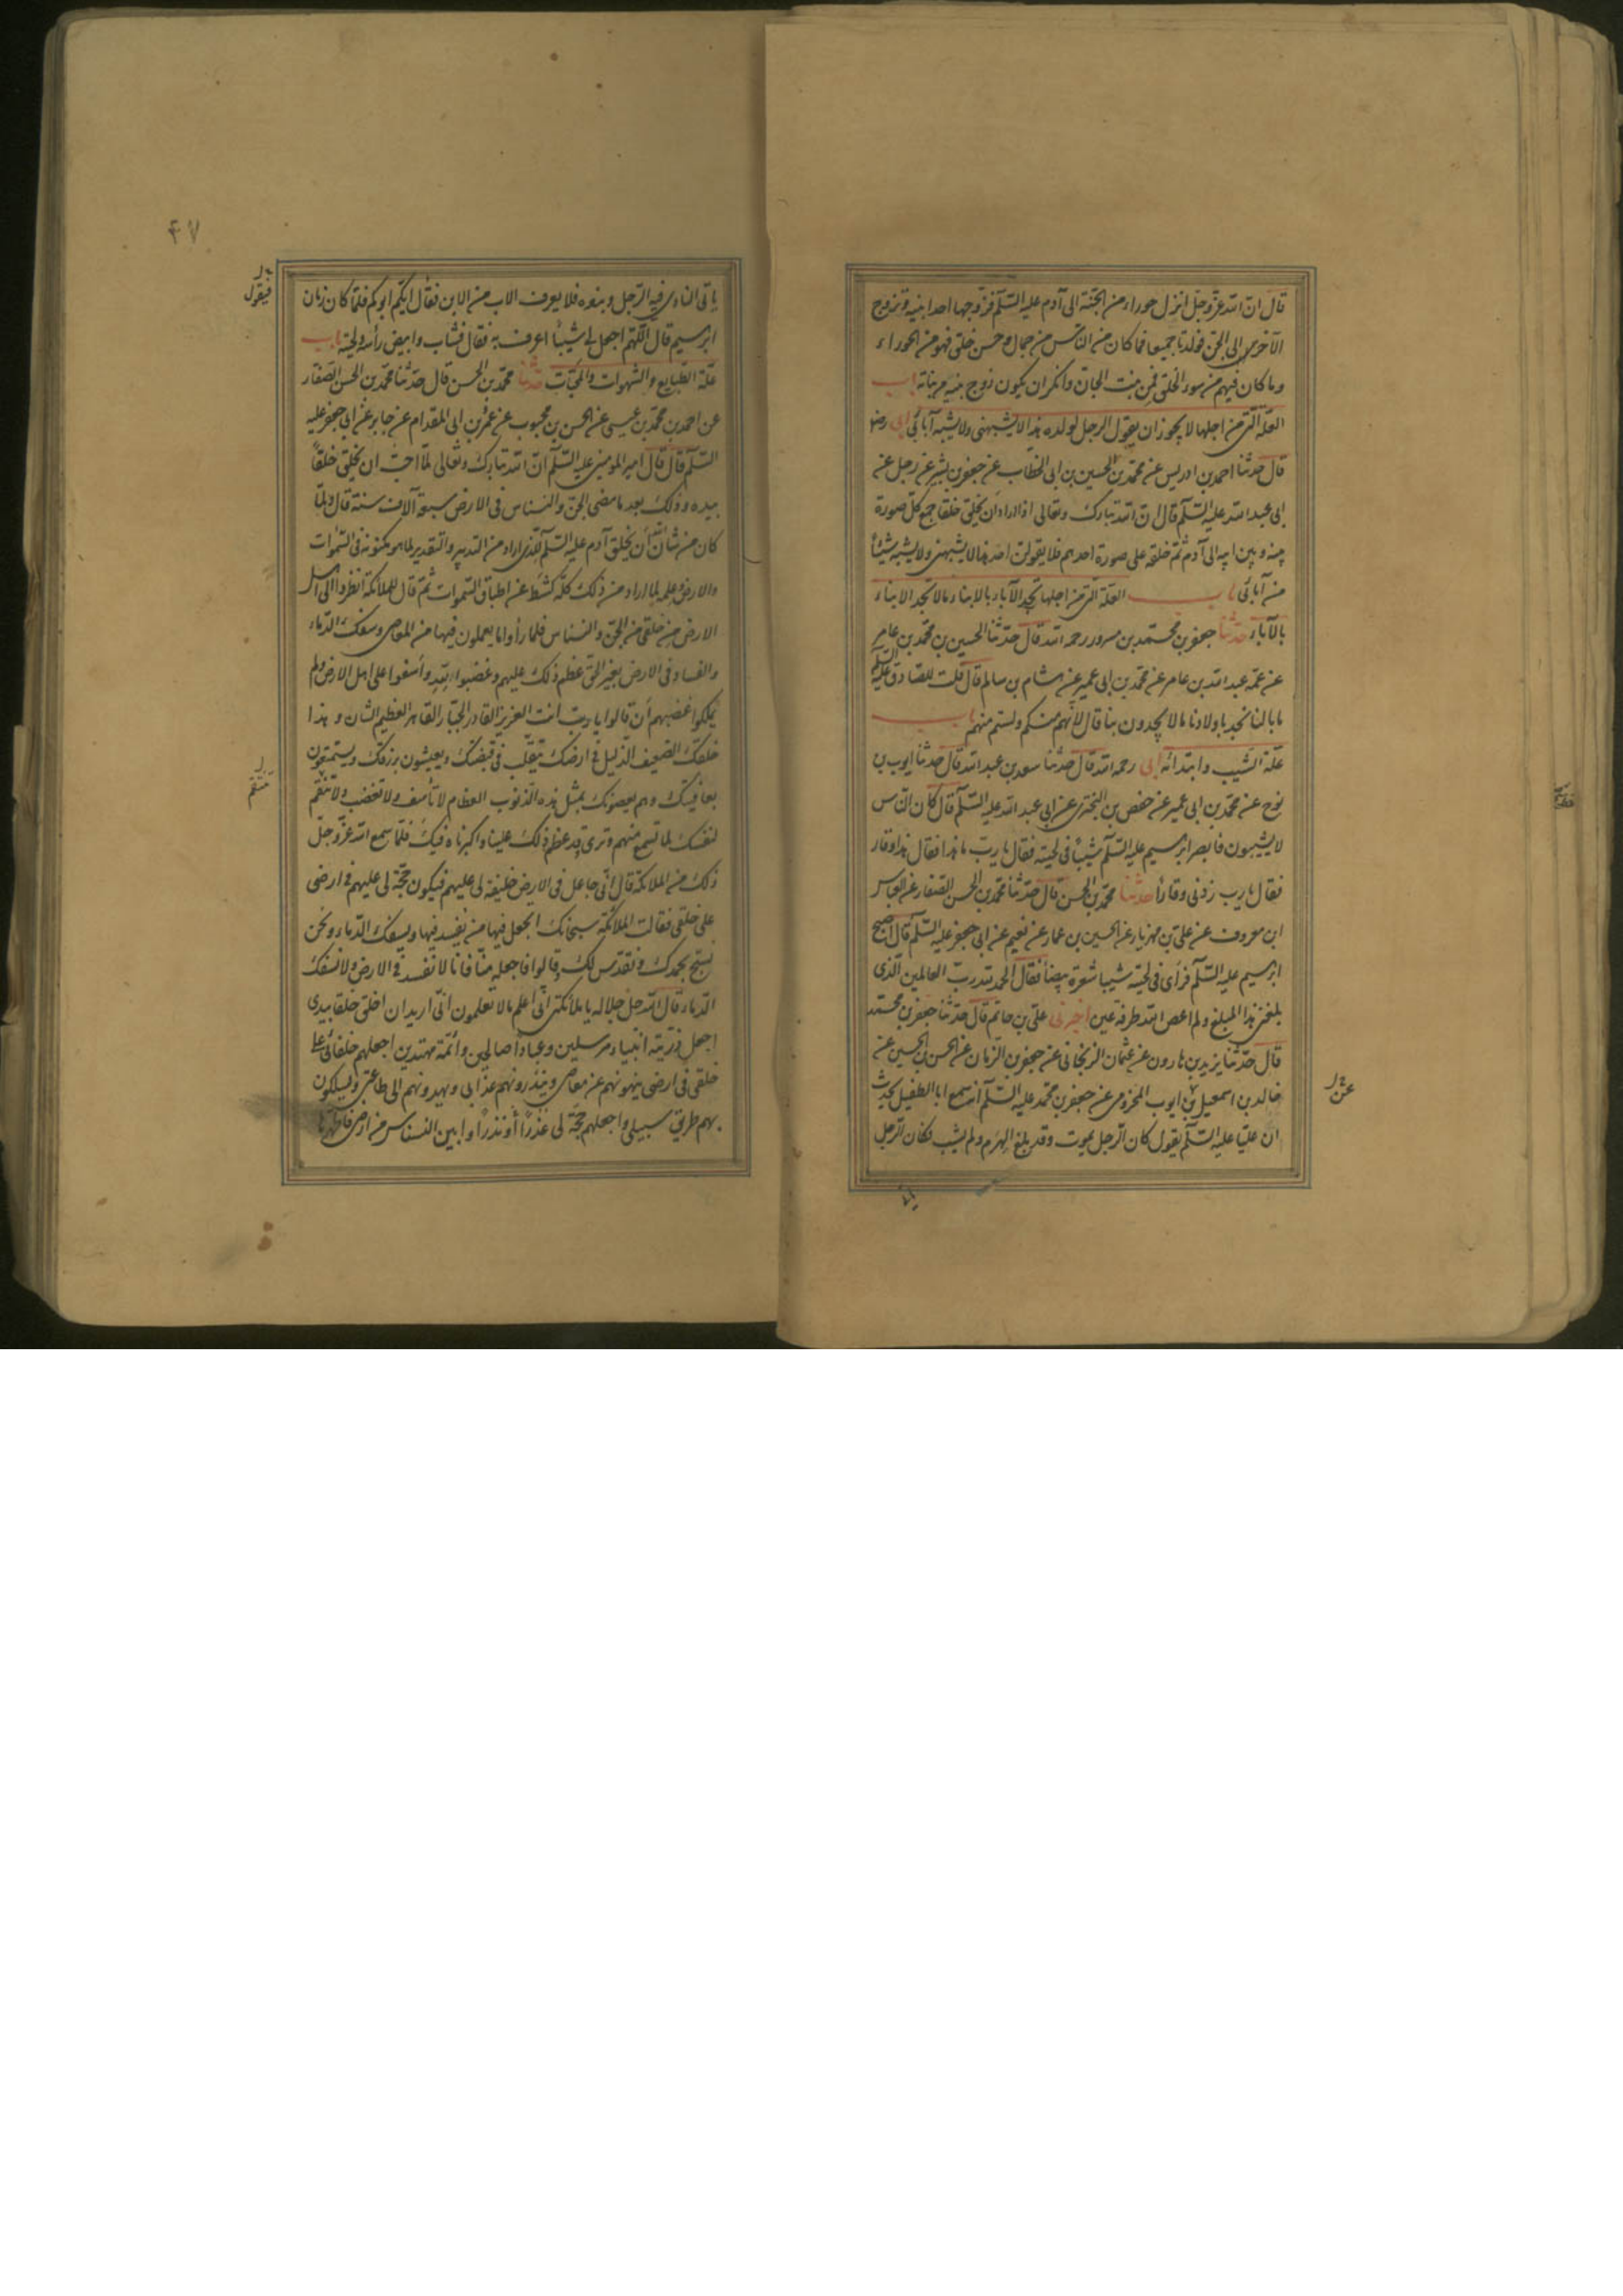 قال ان الله عزوجل انزل حوراء من الجنة الى آدم عليه السلم فزوجها احد ابنيه وتزوج
الآخر الى الجن فولدتا جميعا فما كان من الناس من جمال وحسن خلق فهو من الحوراء
وما كان فيهم من سوء الخلق فمن بنت الجان وانكر ان يكون زوج بنيه من بناته باب
العلة التى من اجلها لا يجوز ان يقول الرجل لولده هذا لا يشبهنى ولا يشبه آبائى ابى رض
قال حدثنا احمد بن ادريس عن محمد بن الحسين بن ابى الخطاب عن جعفر بن بشير عن رجل عن
ابى عبد الله عليه السلم قال ان الله تبارك وتعالى اذا اراد ان يخلق خلقا جمع كل صورة
بينه وبين ابيه الى آدم ثم خلقه على صورة احدهم فلا يقولن احد هذا لا يشبهنى ولا يشبه شيئا
من آبائى باب العلة التى من اجلها تجد الآباء بالابناء ما لا تجد الابناء
بالآباء حدثنا جعفر بن محمد بن مسرور رحمه الله قال حدثنا الحسين بن محمد بن عامر
عن عمه عبد الله بن عامر عن محمد بن ابى عمير عن هشام بن سالم قال قلت للصادق عليه السلم
ما بالنا نجد باولادنا ما لا يجدون بنا قال لانهم منكم ولستم منهم باب
علة الشيب وابتدائه ابى رحمه الله قال حدثنا سعد بن عبد الله قال حدثنا ايوب بن
نوح عن محمد بن ابى عمير عن حفص بن البخترى عن ابى عبد الله عليه السلم قال كان الناس
لا يشيبون فابصر ابرهيم عليه السلم شيبا فى لحيته فقال يا رب ما هذا فقال هذا وقار
فقال يا رب زدنى وقارا حدثنا محمد بن الحسن قال حدثنا محمد بن الحسن الصفار عن العباس
ابن معروف عن على بن مهزيار عن الحسين بن عمار عن نعيم عن ابى جعفر عليه السلم قال اصبح
ابرهيم عليه السلم فرأى فى لحيته شيبا شعرة بيضا فقال الحمد لله رب العالمين الذى
بلغنى هذا المبلغ ولم اعص الله طرفة عين اخبرنى على بن حاتم قال حدثنا جعفر بن محمد
قال حدثنا يزيد بن هارون عن عثمان الزنجانى عن جعفر بن الزمان عن الحسن بن الحسين عن
خالد بن اسمعيل بن ايوب المخزومى عن جعفر بن محمد عليه السلم انه سمع ابا الطفيل يحدث
ان عليا عليه السلم يقول كان الرجل يموت وقد بلغ الهرم ولم يشب فكان الرجل
عن
يأتى
۴۷
فيقول
ياتى النادى فيه الرجل وبنوه فلا يعرف الاب من الابن فقال ايكم ابوكم فلما كان زمان
ابرهيم قال اللهم اجعل لى شيبا اعرف به فقال فشاب وابيض رأسه ولحيته باب
علة الطبايع والشهوات والمحبات حدثنا محمد بن الحسن قال حدثنا محمد بن الحسن الصفار
عن احمد بن محمد بن عيسى عن الحسن بن محبوب عن عمرو بن ابى المقدام عن جابر عن ابى جعفر عليه
السلم قال قال امير المومنين عليه السلم ان الله تبارك وتعالى لما احب ان يخلق خلقا
بيده وذلك بعد ما مضى الجن والنسناس فى الارض سبعة آلاف سنة قال ولما
كان من شان الله ان يخلق آدم عليه السلم للذى اراد من التدبير والتقدير لما هو مكونه فى السموات
والارض وعلمه لما اراد من ذلك كله كشط عن اطباق السموات ثم قال للملائكة انظروا الى اهل
الارض من خلقى من الجن والنسناس فلما رأوا ما يعملون فيها من المعاصى وسفك الدماء
والفساد فى الارض بغير الحق عظم ذلك عليهم وغضبوا لله وأسفوا على اهل الارض ولم
يملكوا غضبهم أن قالوا يا رب انت العزيز القادر الجبار القاهر العظيم الشان وهذا
خلقك الضعيف الذليل فى ارضك يتقلب فى قبضتك ويعيشون برزقك ويستمتعون
بعافيتك وهم يعصونك بمثل هذه الذنوب العظام لا تأسف ولا تغضب ولا تنقم
تنتقم
لنفسك لما تسمع منهم وترى قد عظم ذلك علينا واكبرناه فيك فلما سمع الله عزوجل
ذلك من الملائكة قال انى جاعل فى الارض خليفة لى عليهم فيكون حجة لى عليهم فى ارضى
على خلقى فقالت الملائكة سبحانك اتجعل فيها من يفسد فيها ويسفك الدماء ونحن
نسبح بحمدك ونقدس لك وقالوا فاجعله منا فانا لا نفسد فى الارض ولا نسفك
الدماء قال الله جل جلاله يا ملائكتى انى اعلم ما لا تعلمون انى اريد ان اخلق خلقا بيدى
اجعل ذريته انبياء مرسلين وعبادا صالحين وائمة مهتدين اجعلهم خلفائى على
خلقى فى ارضى ينهونهم عن معاصى وينذرونهم عذابى ويهدونهم الى طاعتى ويسلكون
بهم طريق سبيلى واجعلهم حجة لى عذرا أو نذرا وابين النسناس من ارضى فاطهرها